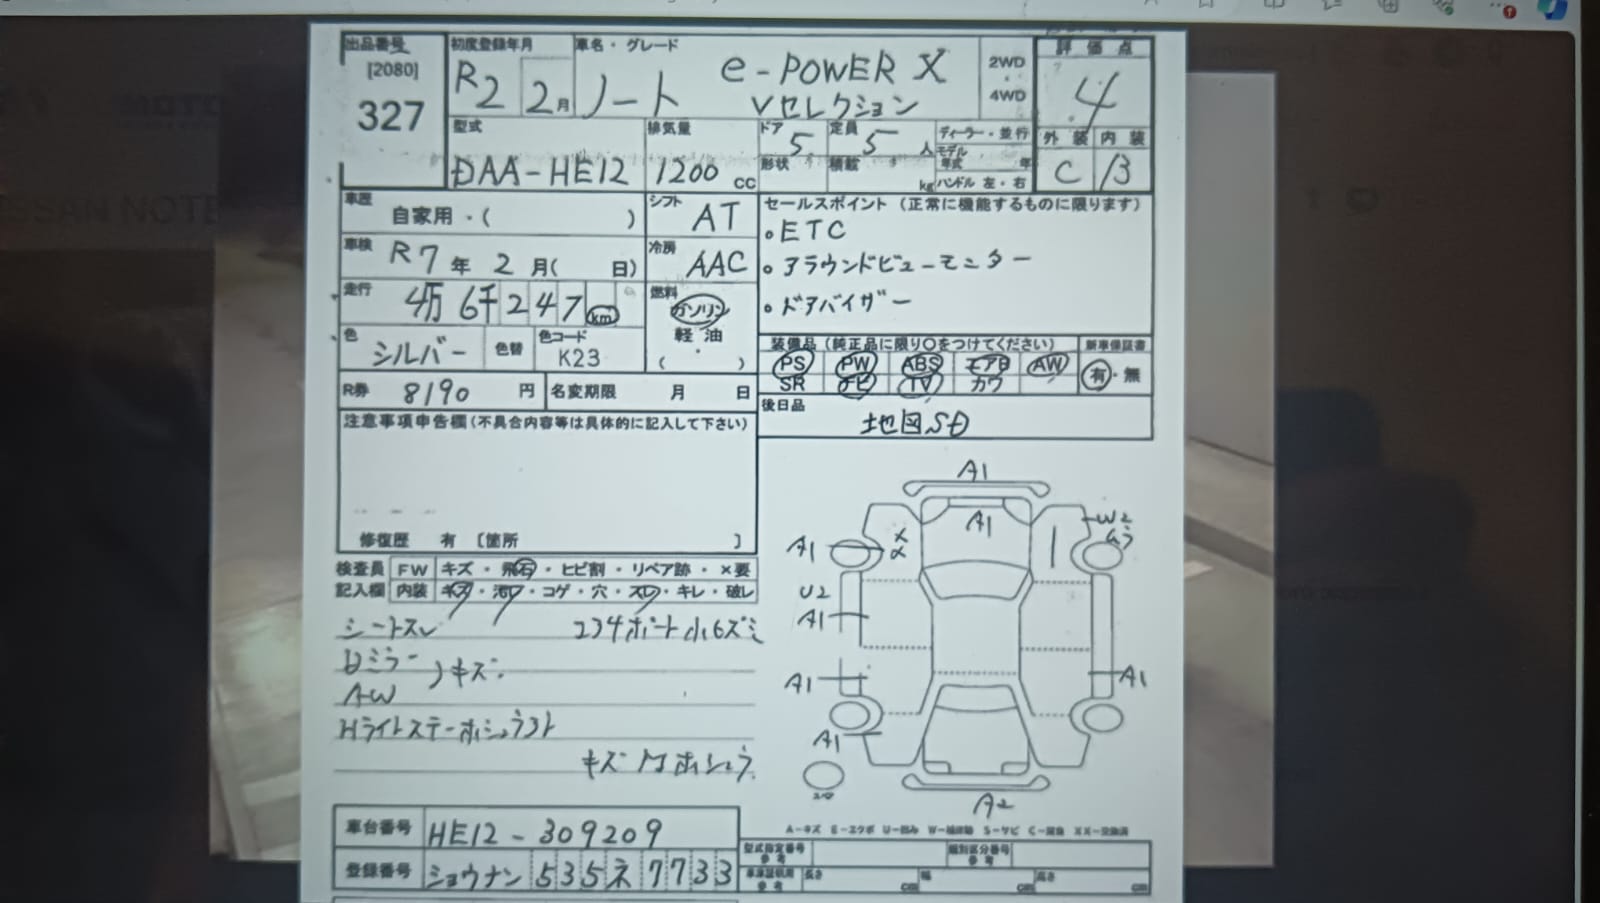 出品番号
[2080]
327
初度登録年月
R2 2月
車名・グレード
ノート e-POWER X
Vセレクション
2WD
・
4WD
評価点
4
型式
DAA-HE12
排気量
1200 cc
ドア
5
定員
5 人
形状
積載
kg
ディーラー・並行
モデル年式 年
ハンドル 左・右
外装 内装
C B
車歴
自家用・( )
シフト
AT
車検
R7年 2月( 日)
冷房
AAC
走行
4万 6千 2 4 7 km
燃料
ガソリン
軽油
( )
色
シルバー
色替
色コード
K23
R券 8190 円
名変期限 月 日
セールスポイント (正常に機能するものに限ります)
・ETC
・アラウンドビューモニター
・ドアバイザー
装備品 (純正品に限り○をつけてください)
新車保証書
PS PW ABS エアB AW
SR ナビ TV カワ
有・無
後日品
地図SD
注意事項申告欄 (不具合内容等は具体的に記入して下さい)
修復歴 有 〔箇所 〕
検査員
記入欄
FW キズ・飛石・ヒビ割・リペア跡・×要
内装 キズ・汚レ・コゲ・穴・スレ・キレ・破レ
シートスレ
Dミラー
AW
キズ
Hライトステーホシュウアト
キズ
ホシュウ
A1
A1
W2
A1
U2
A1
A1
A1
A1
A2
A-キズ E-エクボ U-凹み W-補修跡 S-サビ C-腐食 XX-交換済
車台番号
HE12-309209
登録番号
ショウナン 535 ネ 7733
型式指定番号
参考
類別区分番号
参考
長さ cm 幅 cm 高さ cm